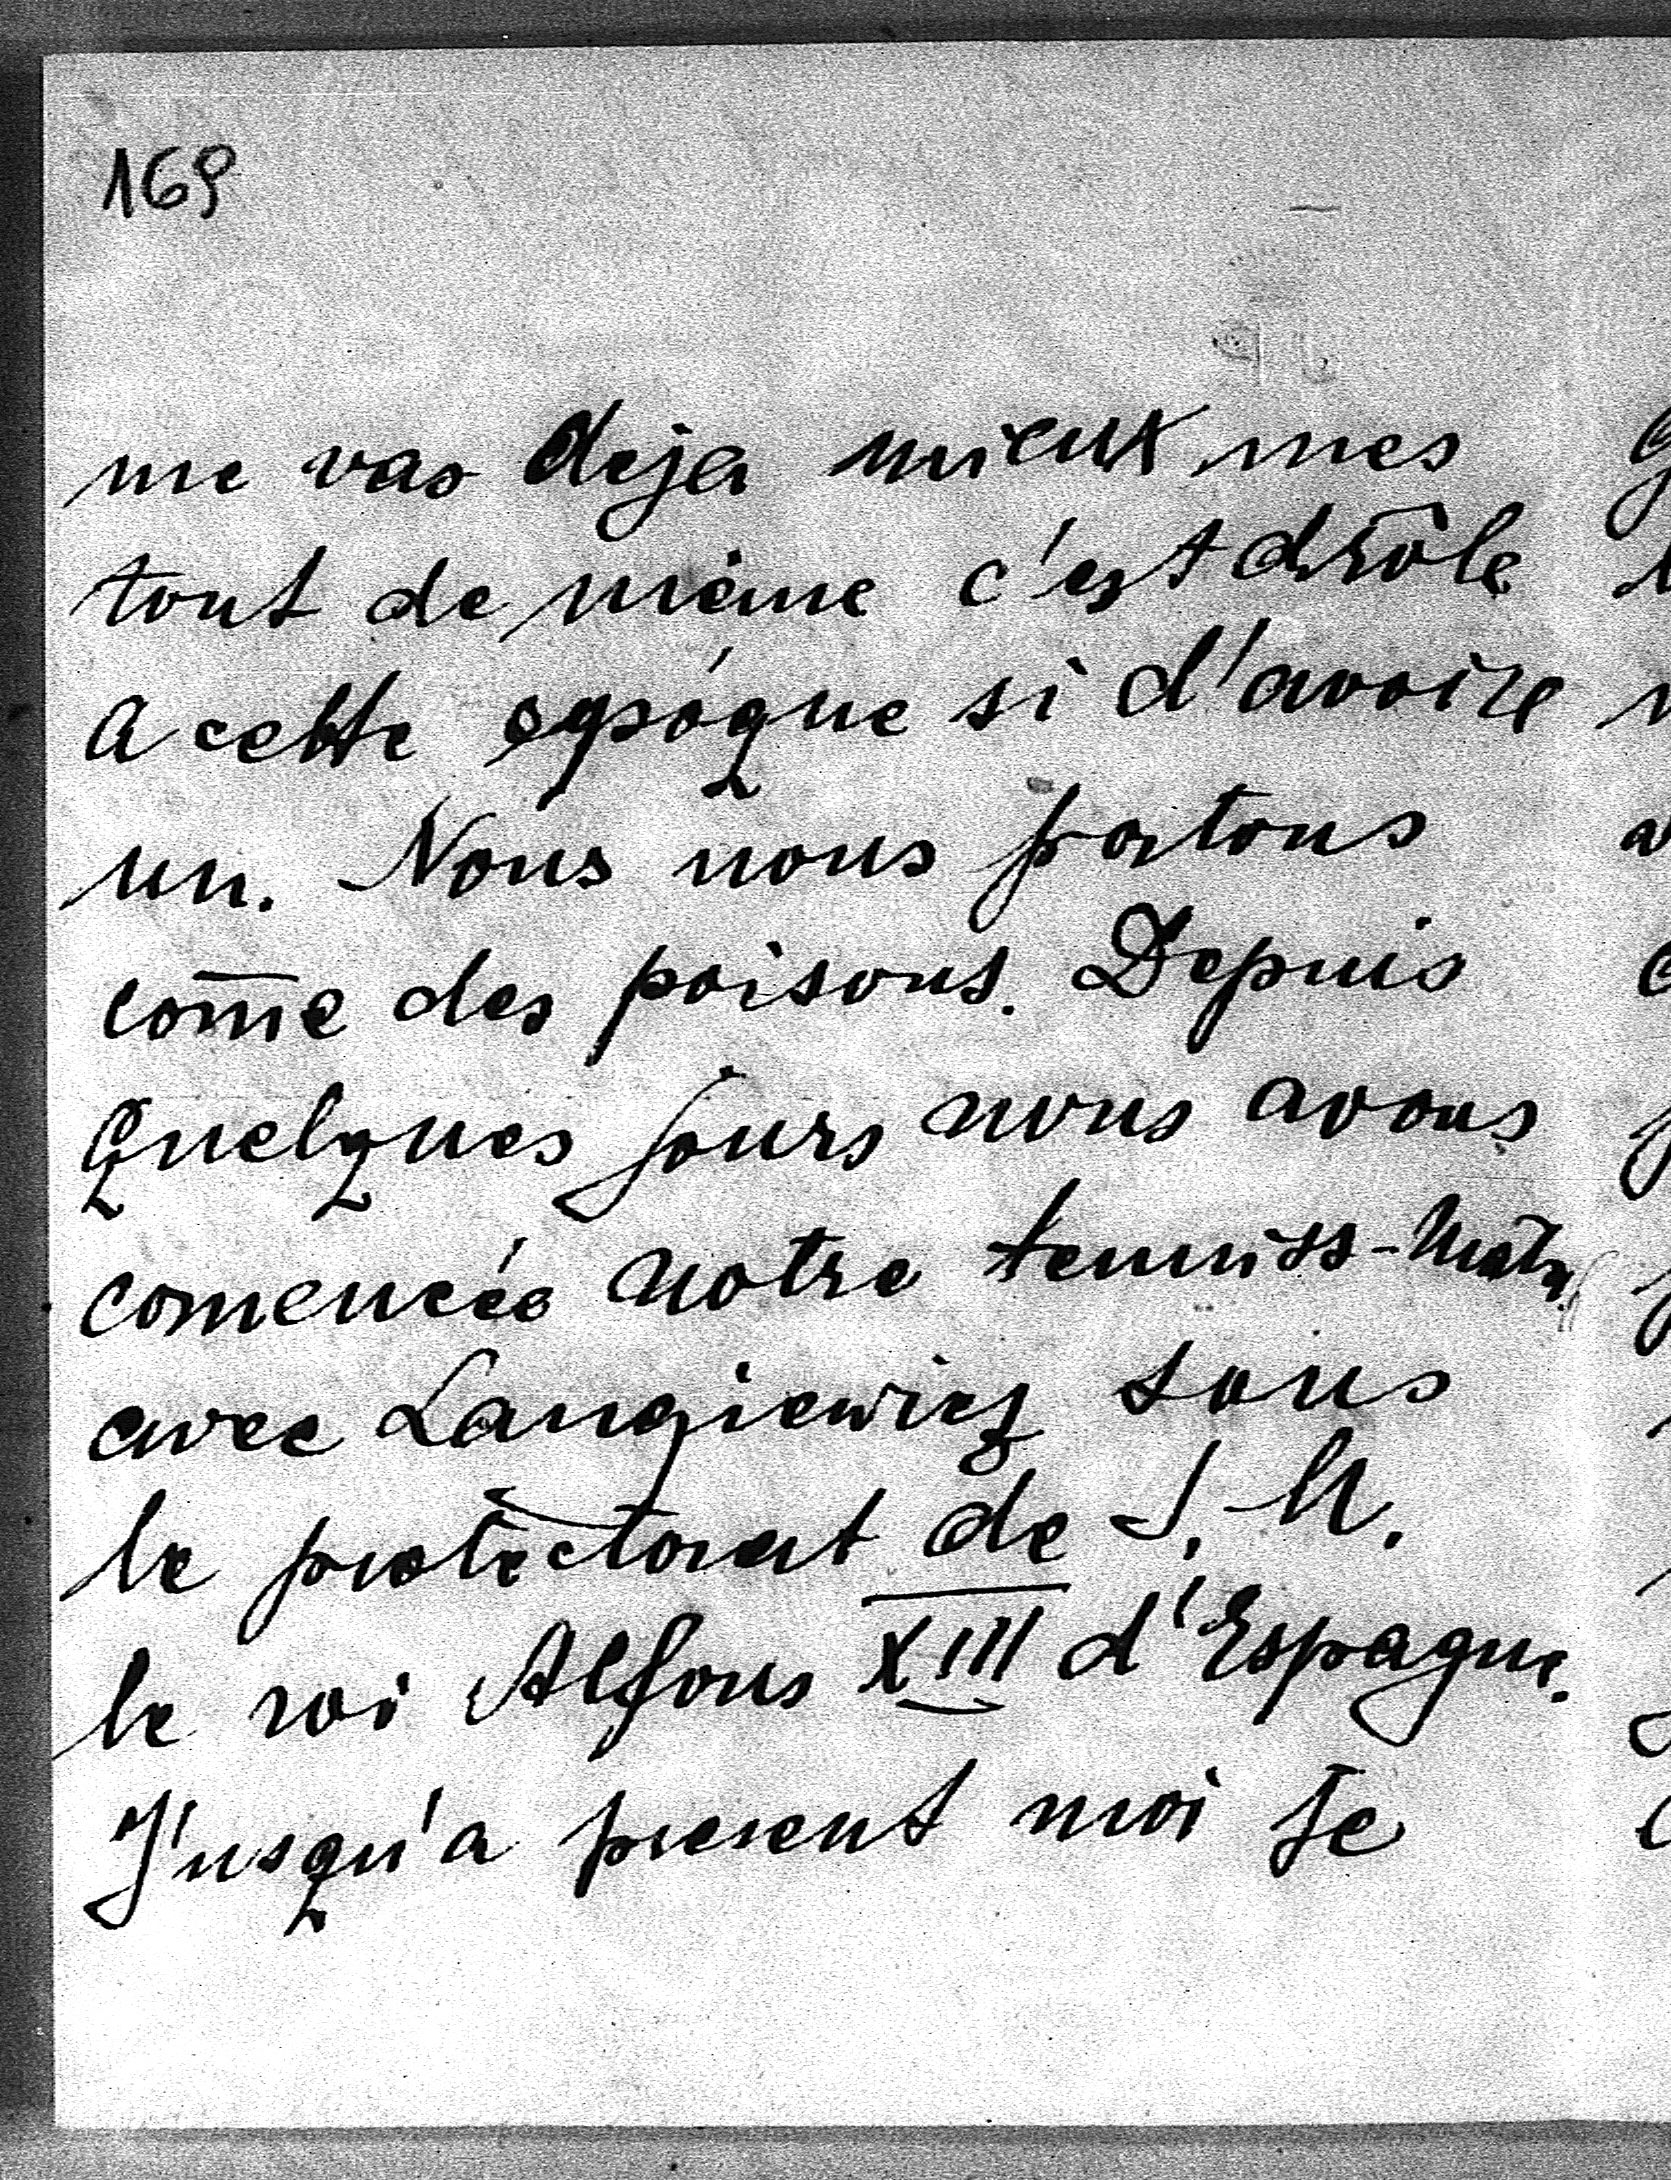 169
me vas deja mieux mes
tout de même c'est drôle
a cette epóque si d'avoire
un. Nous nous portons
com̄e des poisons. Depuis
Quelques jours nous avons
comencée notre tenniss-Match
avec Langiewicz sous
le protectorat de S. M.
le roi Alfons XIII d'Espagne.
J'usqu'a present moi je